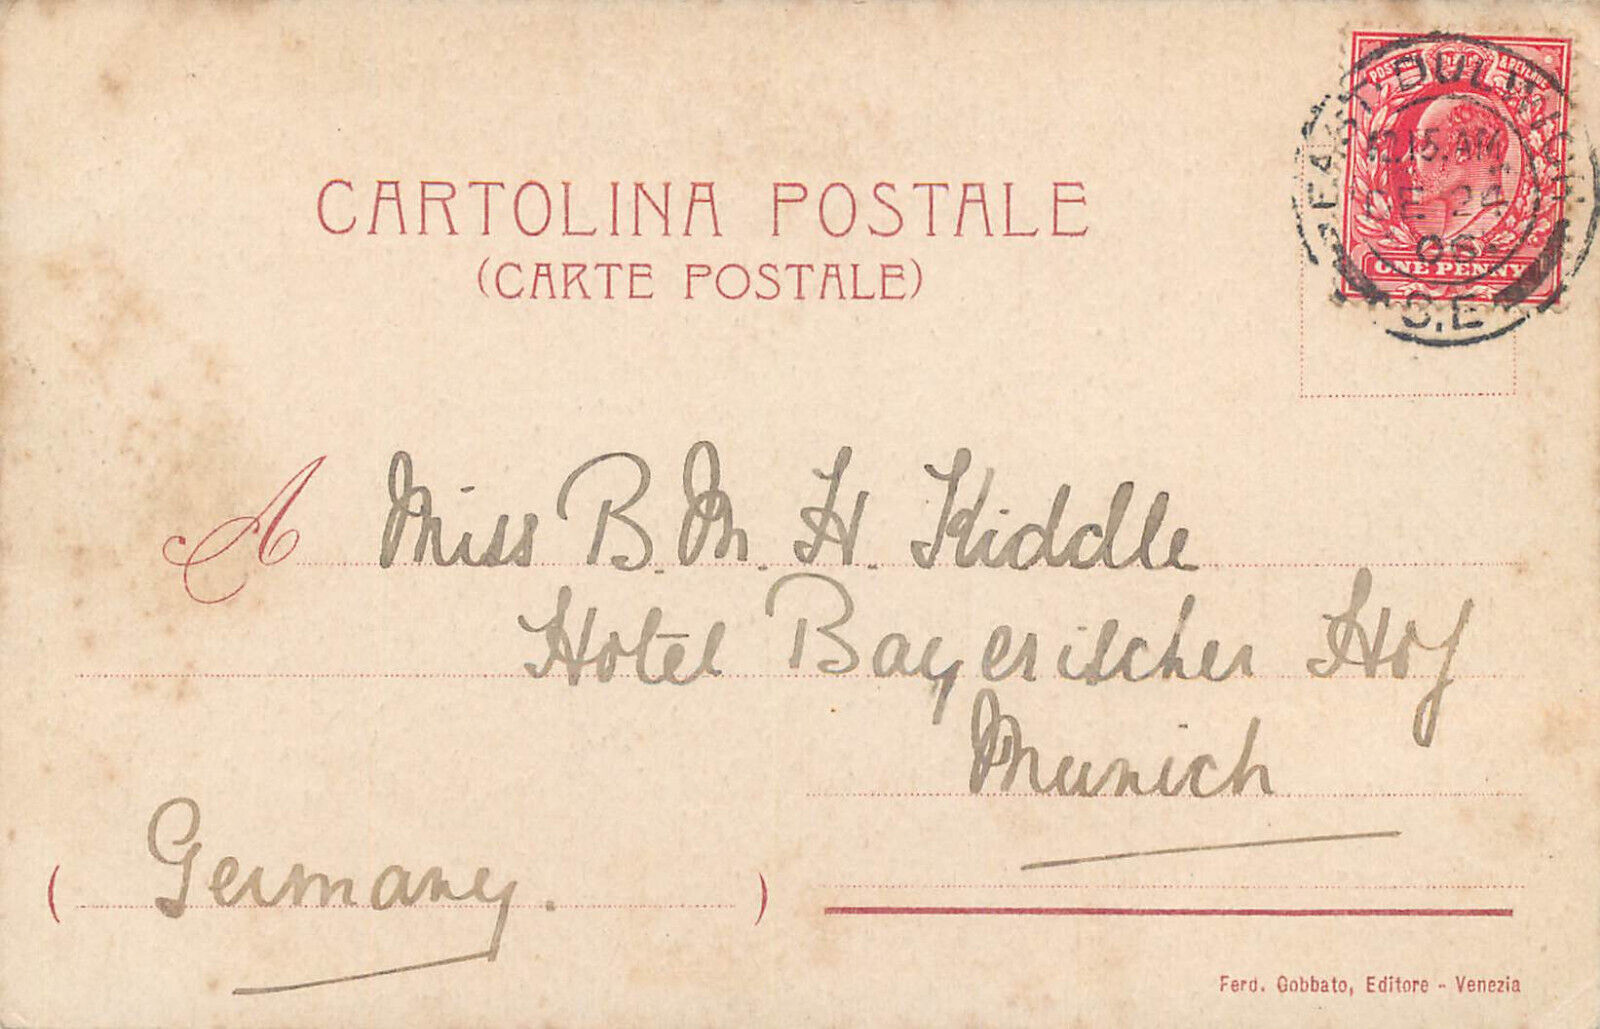 POSTAGE & REVENUE
EAST DULWICH
12.15.AM
DE 24
06
ONE PENNY
S.E
CARTOLINA POSTALE
(CARTE POSTALE)
A Miss B. M. H. Kiddle
Hotel Bayerischer Hof
Munich
( Germany. )
Ferd. Gobbato, Editore - Venezia